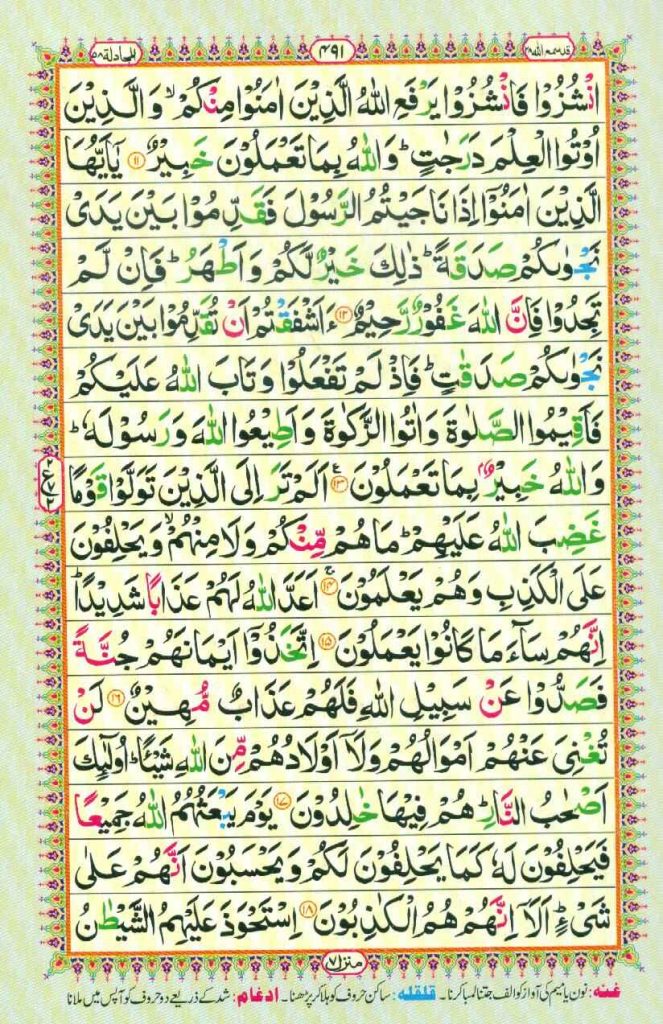 قد سمع الله ۲۸
۴۹۱
المجادلة ۵۸
انْشُزُوْا فَانْشُزُوْا يَرْفَعِ اللّٰهُ الَّذِيْنَ اٰمَنُوْا مِنْكُمْ ۙ وَ الَّذِيْنَ
اُوْتُوا الْعِلْمَ دَرَجٰتٍ ؕ وَ اللّٰهُ بِمَا تَعْمَلُوْنَ خَبِيْرٌ ۝۱۱ يٰۤاَيُّهَا
الَّذِيْنَ اٰمَنُوْۤا اِذَا نَاجَيْتُمُ الرَّسُوْلَ فَقَدِّمُوْا بَيْنَ يَدَيْ
نَجْوٰىكُمْ صَدَقَةً ؕ ذٰلِكَ خَيْرٌ لَّكُمْ وَ اَطْهَرُ ؕ فَاِنْ لَّمْ
تَجِدُوْا فَاِنَّ اللّٰهَ غَفُوْرٌ رَّحِيْمٌ ۝۱۲ ءَاَشْفَقْتُمْ اَنْ تُقَدِّمُوْا بَيْنَ يَدَيْ
نَجْوٰىكُمْ صَدَقٰتٍ ؕ فَاِذْ لَمْ تَفْعَلُوْا وَ تَابَ اللّٰهُ عَلَيْكُمْ
فَاَقِيْمُوا الصَّلٰوةَ وَ اٰتُوا الزَّكٰوةَ وَ اَطِيْعُوا اللّٰهَ وَ رَسُوْلَهٗ ؕ
وَ اللّٰهُ خَبِيْرٌۢ بِمَا تَعْمَلُوْنَ ۝۱۳ اَلَمْ تَرَ اِلَى الَّذِيْنَ تَوَلَّوْا قَوْمًا
غَضِبَ اللّٰهُ عَلَيْهِمْ ؕ مَا هُمْ مِّنْكُمْ وَ لَا مِنْهُمْ ۙ وَ يَحْلِفُوْنَ
عَلَى الْكَذِبِ وَ هُمْ يَعْلَمُوْنَ ۝۱۴ اَعَدَّ اللّٰهُ لَهُمْ عَذَابًا شَدِيْدًا ؕ
اِنَّهُمْ سَآءَ مَا كَانُوْا يَعْمَلُوْنَ ۝۱۵ اِتَّخَذُوْۤا اَيْمَانَهُمْ جُنَّةً
فَصَدُّوْا عَنْ سَبِيْلِ اللّٰهِ فَلَهُمْ عَذَابٌ مُّهِيْنٌ ۝۱۶ لَنْ
تُغْنِيَ عَنْهُمْ اَمْوَالُهُمْ وَ لَاۤ اَوْلَادُهُمْ مِّنَ اللّٰهِ شَيْـًٔا ؕ اُولٰٓىِٕكَ
اَصْحٰبُ النَّارِ ؕ هُمْ فِيْهَا خٰلِدُوْنَ ۝۱۷ يَوْمَ يَبْعَثُهُمُ اللّٰهُ جَمِيْعًا
فَيَحْلِفُوْنَ لَهٗ كَمَا يَحْلِفُوْنَ لَكُمْ وَ يَحْسَبُوْنَ اَنَّهُمْ عَلٰى
شَيْءٍ ؕ اَلَاۤ اِنَّهُمْ هُمُ الْكٰذِبُوْنَ ۝۱۸ اِسْتَحْوَذَ عَلَيْهِمُ الشَّيْطٰنُ
منزل ۷
غنه: نون یا میم کی آواز کو الف جتنا لمبا کرنا۔ قلقله: ساکن حروف کو ہلا کر پڑھنا۔ ادغام: شد کے ذریعے دو حروف کو آپس میں ملانا